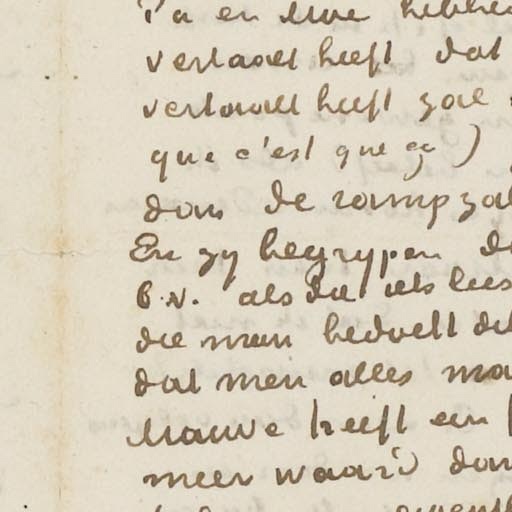 Pa en Moe hebben
verlaagt heeft dat
vertaalt heeft zal
que c'est que ça)
dan de rampzal
En zy begrypen d
b.v. als dat iets lees
die men bedoelt di
dat men alles ma
Mauve heeft een
meer waard dan